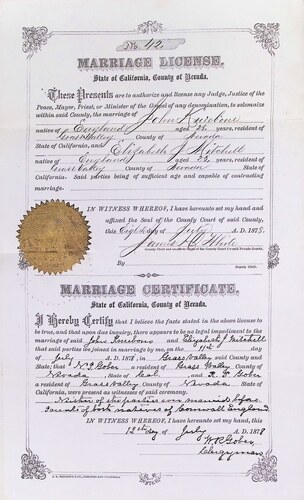 No. 42.
MARRIAGE LICENSE.
State of California, County of Nevada.
These Presents are to authorize and license any Judge, Justice of the
Peace, Mayor, Priest, or Minister of the Gospel of any denomination, to solemnize
within said County, the marriage of John
native of England aged 26 years, resident of
Grass Valley County of Nevada
State of California, and Elizabeth J Mitchell
native of England aged 22 years, resident of
Grass Valley County of Nevada State of
California. Said parties being of sufficient age and capable of contracting
marriage.
IN WITNESS WHEREOF, I have hereunto set my hand and
affixed the Seal of the County Court of said County,
this Eighth of July A.D. 1878.
James
By
Deputy Clerk.
MARRIAGE CERTIFICATE.
State of California, County of Nevada.
I Hereby Certify that I believe the facts stated in the above license
to be true, and that upon due inquiry, there appears to be no legal impediment to the
marriage of said John and Elizabeth J Mitchell
that said parties were joined in marriage by me, on the 11th day
of July A.D. 1878, in Grass Valley said County and
State; that Gober a resident of Grass Valley County of
Nevada State of and Gober
a resident of Grass Valley County of Nevada State of
California, were present as witnesses of said ceremony.
Neither of the parties ever married before
both natives of Cornwall England
IN WITNESS WHEREOF, I have hereunto set my hand, this
12th day of July A.D. 1878
W R Gober
Clergyman